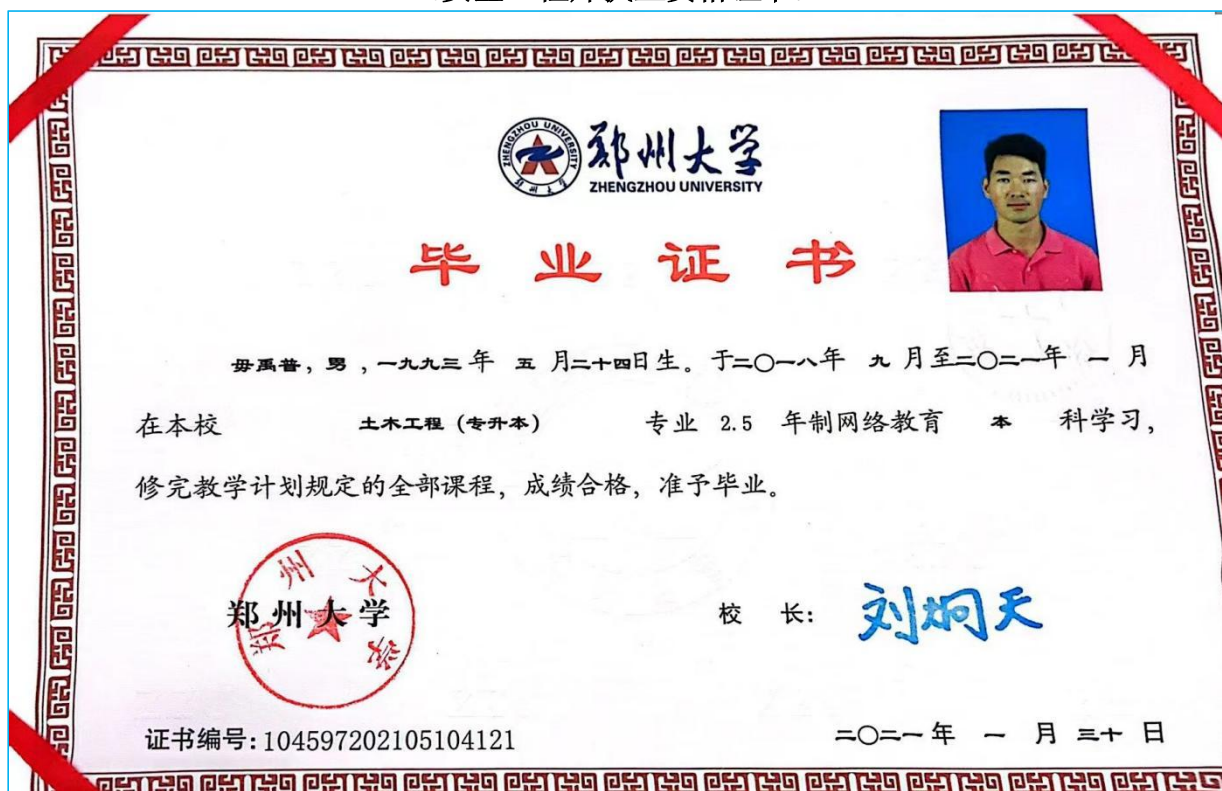 ZHENGZHOU UNIVERSITY
郑州大学
郑州大学
ZHENGZHOU UNIVERSITY
毕业证书
毋禹普，男，一九九三年 五 月二十四日生。于二〇一八年 九 月至二〇二一年 一 月
在本校 土木工程（专升本） 专业 2.5 年制网络教育 本 科学习，
修完教学计划规定的全部课程，成绩合格，准予毕业。
郑州大学
郑州大学
校 长：刘炯天
证书编号：104597202105104121
二〇二一年 一 月 三十 日